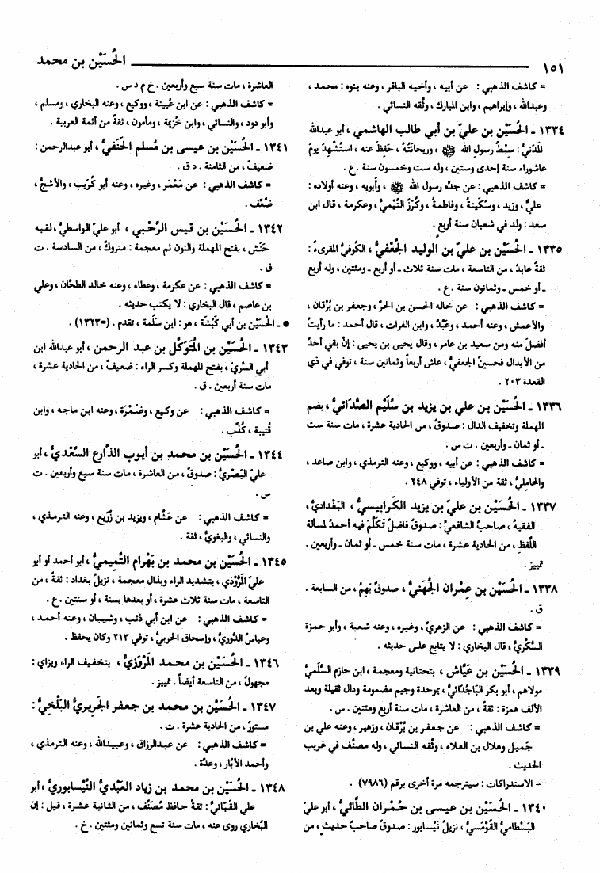 ١٥١
الحُسَيْن بن محمد
= كاشف الذهبي: عن أبيه، وأخيه الباقر، وعنه بنوه: محمد،
وعبدالله، وإبراهيم، وابن المبارك، وثّقه النسائي.
١٣٣٤ ـ الحُسَيْن بن عليّ بن أبي طالب الهاشمي، أبو عبدالله
المدَنيُّ: سِبْطُ رسولِ الله ﷺ، وريحانتُهُ، حَفِظَ عنه، استُشهِدَ يومَ
عاشوراء سنة إحدى وستين، وله ست وخمسون سنة. ع.
= كاشف الذهبي: عن جدِّه رسول الله ﷺ، وأبويه، وعنه أولاده:
عليٌّ، وزيد، وسُكينةُ، وفاطمةُ، وكُرْزٌ التَّيْميُّ، وعكرمة، قال ابن
سعد: ولد في شعبان سنة أربع.
١٣٣٥ ـ الحُسَيْن بن عليِّ بن الوليد الجُعْفيُّ، الكوفيُّ المقرىءُ:
ثقةٌ عابدٌ، من التاسعة، مات سنة ثلاث ـ أو أربع ـ ومئتين، وله أربع
ـ أو خمس ـ وثمانون سنة. ع.
= كاشف الذهبي: عن خاله الحسن بن الحرِّ، وجعفر بن بُرْقان،
والأعمش، وعنه أحمد، وعَبْدٌ، وابن الفرات، قال أحمد: ما رأيتُ
أفضلَ منه ومن سعيد بن عامر، وقال يحيى بن يحيى: إنْ بقي أحدٌ
من الأبدال فحسينٌ الجعفيُّ، عاش أربعاً وثمانين سنة، توفي في ذي
القعدة ٢٠٣.
١٣٣٦ ـ الحُسَيْن بن علي بن يزيد بن سُلَيْم الصُّدَائيُّ، بضم
المهملة وتخفيف الدال: صدوقٌ، من الحادية عشرة، مات سنة ست
ـ أو ثمان ـ وأربعين. ت س.
= كاشف الذهبي: عن أبيه، ووكيع، وعنه الترمذي، وابن صاعد،
والمحامليُّ، ثقة من الأولياء، توفي ٢٤٨.
١٣٣٧ ـ الحُسَيْن بن عليّ بن يزيد الكَرابيسيُّ، البغداديُّ،
الفقيهُ، صاحبُ الشافعيِّ: صدوقٌ فاضلٌ تكلَّم فيه أحمدُ لمسألة
اللَّفظ، من الحادية عشرة، مات سنة خمس ـ أو ثمان ـ وأربعين.
تمييز.
١٣٣٨ ـ الحُسَيْن بن عِمْران الجُهَنيُّ، صدوقٌ يَهِمُ، من السابعة.
ق.
= كاشف الذهبي: عن الزهريِّ، وغيره، وعنه شعبة، وأبو حمزة
السُّكَّريُّ، قال البخاري: لا يتابع على حديثه.
١٣٣٩ ـ الحُسَيْن بن عَيَّاش، بتحتانية ومعجمة، ابن حازم السُّلَميُّ
مولاهم، أبو بكر البَاجُدَّائيُّ، بموحدة وجيم مضمومة ودال ثقيلة وبعد
الألف همزة: ثقةٌ، من العاشرة، مات سنة أربع ومئتين. س.
= كاشف الذهبي: عن جعفر بن بُرْقان، وزهير، وعنه علي بن
جَميل وهلال بن العلاء، وثَّقه النسائي، وله مصنَّف في غريب
الحديث.
ـ الاستدراكات: سيترجمه مرة أخرى برقم (٧٩٨٦).
١٣٤٠ ـ الحُسَيْن بن عيسى بن حُمْران الطَّائيُّ، أبو عليّ
البَسْطاميُّ القُوْمَسيُّ، نزيلُ نَيْسابور: صدوقٌ صاحبُ حديث، من
العاشرة، مات سنة سبع وأربعين. خ م د س.
= كاشف الذهبي: عن ابن عُيينة، ووكيع، وعنه البخاري، ومسلم،
وأبو داود، والنسائي، وابن خُزَيْمة، ومأمون، ثقةٌ من أئمة العربية.
١٣٤١ ـ الحُسَيْن بن عيسى بن مُسْلم الحَنَفيُّ، أبو عبدالرحمن:
ضعيفٌ، من الثامنة. د ق.
= كاشف الذهبي: عن مَعْمَر، وغيره، وعنه أبو كُرَيْب، والأشجُّ،
ضُعِّف.
١٣٤٢ ـ الحُسَيْن بن قيس الرَّحَبي، أبو عليّ الواسطيُّ، لقبه
حَنَش، بفتح المهملة والنون ثم معجمة: متروكٌ، من السادسة. ت
ق.
= كاشف الذهبي: عن عكرمة، وعطاء، وعنه خالد الطحَّان، وعلي
بن عاصم، قال البخاري: لا يكتب حديثه.
● ـ الحُسَيْن بن أبي كَبْشَة، هو: ابن سَلَمة، تقدم. (=١٣٢٣).
١٣٤٣ ـ الحُسَيْن بن المُتَوَكِّل بن عبد الرحمن، أبو عبدالله ابن
أبي السَّرِيِّ، بفتح المهملة وكسر الراء: ضعيفٌ، من الحادية عشرة،
مات سنة أربعين. ق.
= كاشف الذهبي: عن وكيع، وضَمْرَة، وعنه ابن ماجه، وابن
قُتيبة، كُذِّب.
١٣٤٤ ـ الحُسَيْن بن محمد بن أيوب الذَّارع السَّعْديُّ، أبو
عليّ البَصْريُّ: صدوقٌ، من العاشرة، مات سنة سبع وأربعين. ت
س.
= كاشف الذهبي: عن عَثَّام، ويزيد بن زُرَيْع، وعنه الترمذي،
والنسائي، والبغويُّ، ثقة.
١٣٤٥ ـ الحُسَيْن بن محمد بن بَهْرام التَّميميُّ، أبو أحمد أو أبو
عليّ المَرُّوذيُّ، بتشديد الراء وبذال معجمة، نزيلُ بغداد: ثقةٌ، من
التاسعة، مات سنة ثلاث عشرة، أو بعدها بسنة، أو سنتين. ع.
= كاشف الذهبي: عن ابن أبي ذئب، وشيبان، وعنه أحمد،
وعباسٌ الدُّوريُّ، وإسحاق الحربيُّ، توفي ٢١٣ وكان يحفظ.
١٣٤٦ ـ الحُسَيْن بن محمد المَرْوَزيُّ، بتخفيف الراء وبزاي:
مجهولٌ، من التاسعة أيضاً. تمييز.
١٣٤٧ ـ الحُسَيْن بن محمد بن جعفر الجَريريُّ البَلْخيُّ:
مستورٌ، من الحادية عشرة. ت.
= كاشف الذهبي: عن عبدالرزاق، وعبيدالله، وعنه الترمذي،
وأحمد الأبَّار، وعدَّة.
١٣٤٨ ـ الحُسَيْن بن محمد بن زياد العَبْديُّ النَّيْسابوريُّ، أبو
علي القَبَّانيُّ: ثقةٌ حافظٌ مُصَنِّف، من الثانية عشرة، قيل: إن
البخاري روى عنه، مات سنة تسع وثمانين ومئتين. خ.